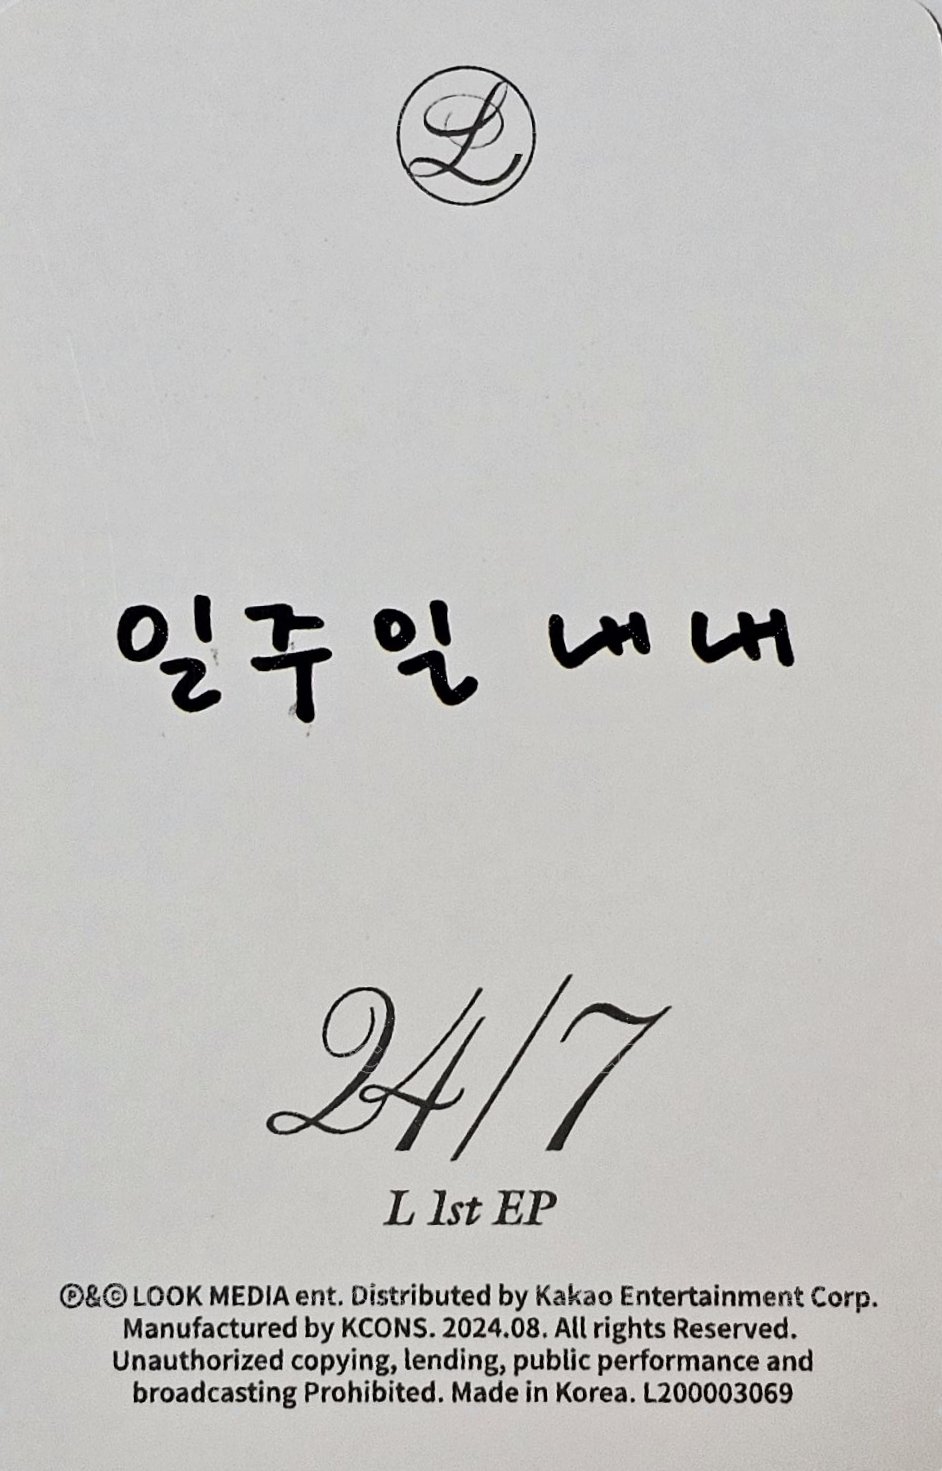 L
일주일 내내
24/7
L 1st EP
Ⓟ&ⓒ LOOK MEDIA ent. Distributed by Kakao Entertainment Corp.
Manufactured by KCONS. 2024.08. All rights Reserved.
Unauthorized copying, lending, public performance and
broadcasting Prohibited. Made in Korea. L200003069